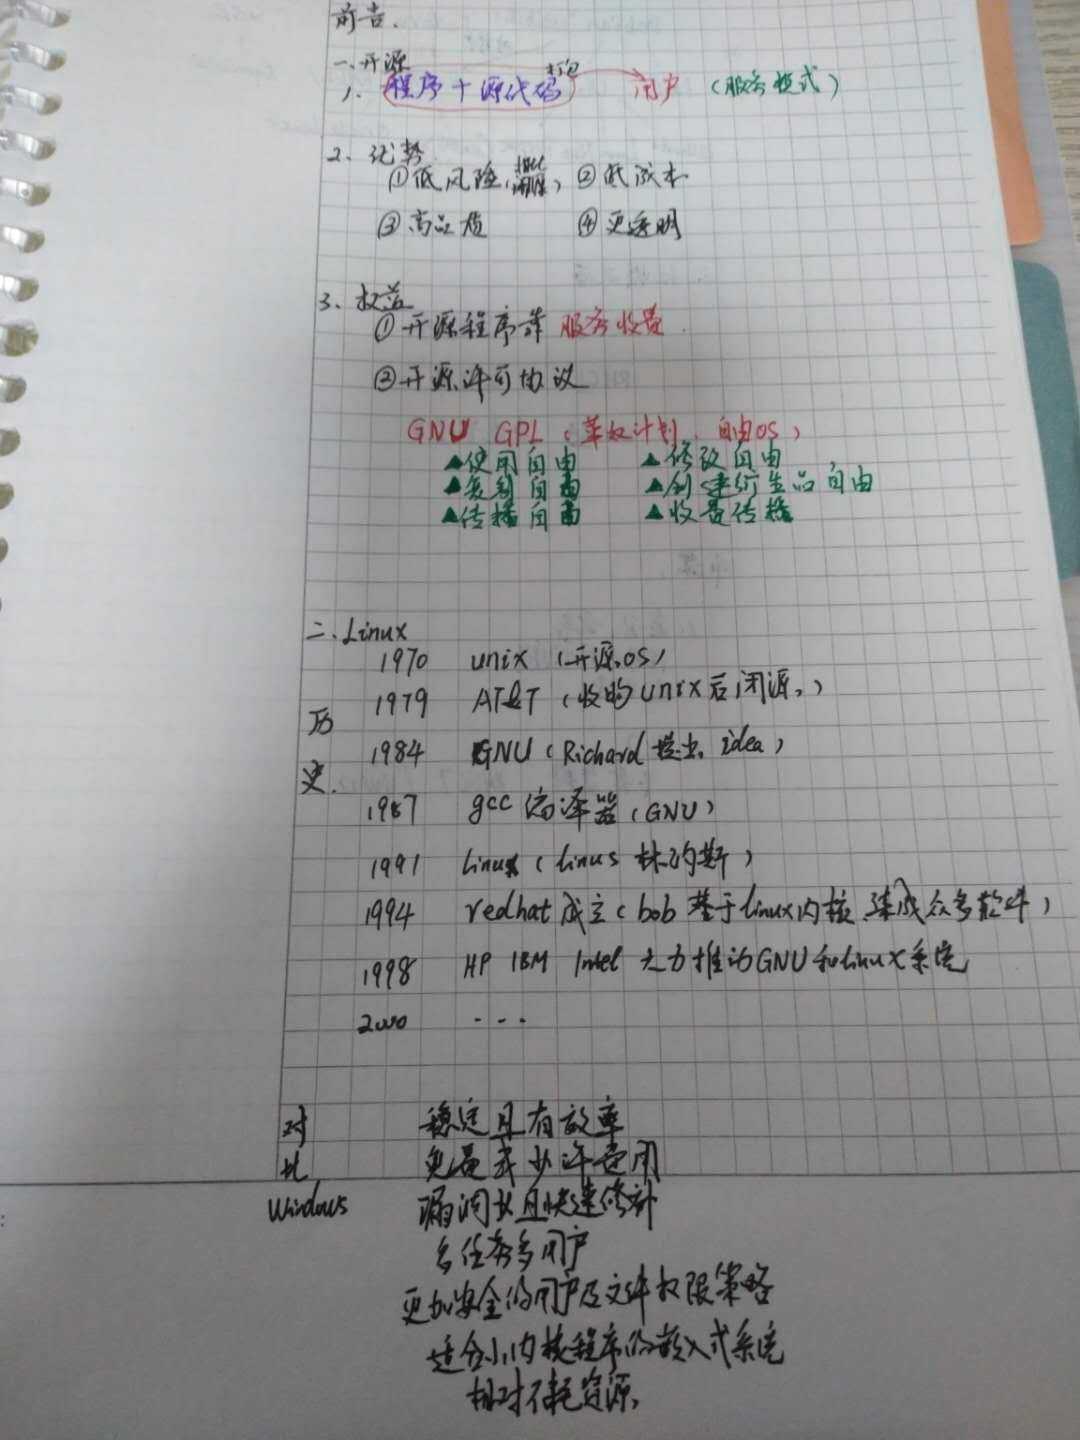 前言.
一、开源
1. 程序+源代码 打包 用户 (服务模式)
2、优势
①低风险(相比闭源) ②低成本
③高品质 ④更透明
3、权益
①开源程序靠 服务收费.
②开源许可协议
GNU GPL (革奴计划、自由OS)
▲使用自由 ▲修改自由
▲复制自由 ▲创建衍生品自由
▲传播自由 ▲收费传播
二.Linux
历史.
1970 unix (开源OS)
1979 AT&T (收购unix后闭源。)
1984 GNU (Richard 提出 idea)
1987 gcc 编译器 (GNU)
1991 linux (linus 林纳斯)
1994 redhat 成立 (bob 基于linux内核 集成众多软件)
1998 HP IBM Intel 大力推动GNU和linux系统
2000 ...
对比 Windows
稳定且有效率
免费或少许费用
漏洞少且快速修补
多任务多用户
更加安全的用户及文件权限策略
适合小内核程序的嵌入式系统
相对不耗资源.